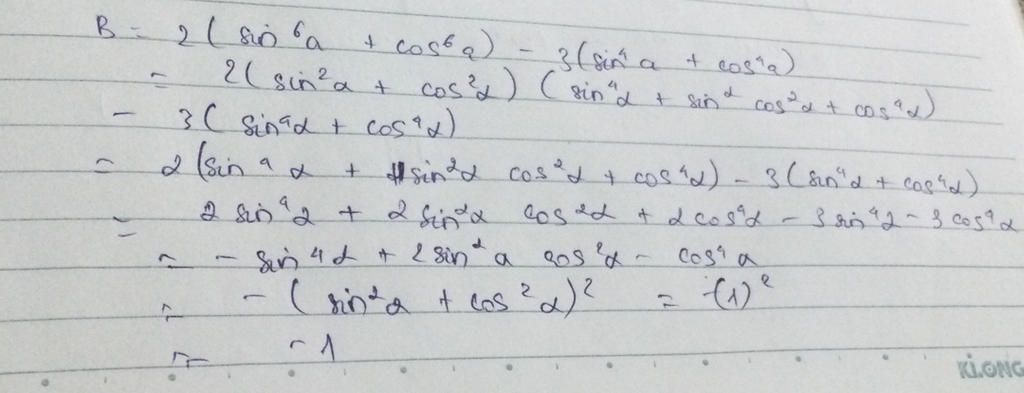 B = 2 ( sin⁶a + cos⁶a ) - 3 ( sin⁴a + cos⁴a )
= 2 ( sin²α + cos²α ) ( sin⁴α + sin²α cos²α + cos⁴α )
- 3 ( sin⁴α + cos⁴α )
= 2 ( sin⁴α + sin²α cos²α + cos⁴α ) - 3 ( sin⁴α + cos⁴α )
= 2 sin⁴α + 2 sin²α cos²α + 2 cos⁴α - 3 sin⁴α - 3 cos⁴α
= - sin⁴α + 2 sin²a cos²α - cos⁴a
= - ( sin²α + cos²α )² = -(1)²
= -1
KLONG